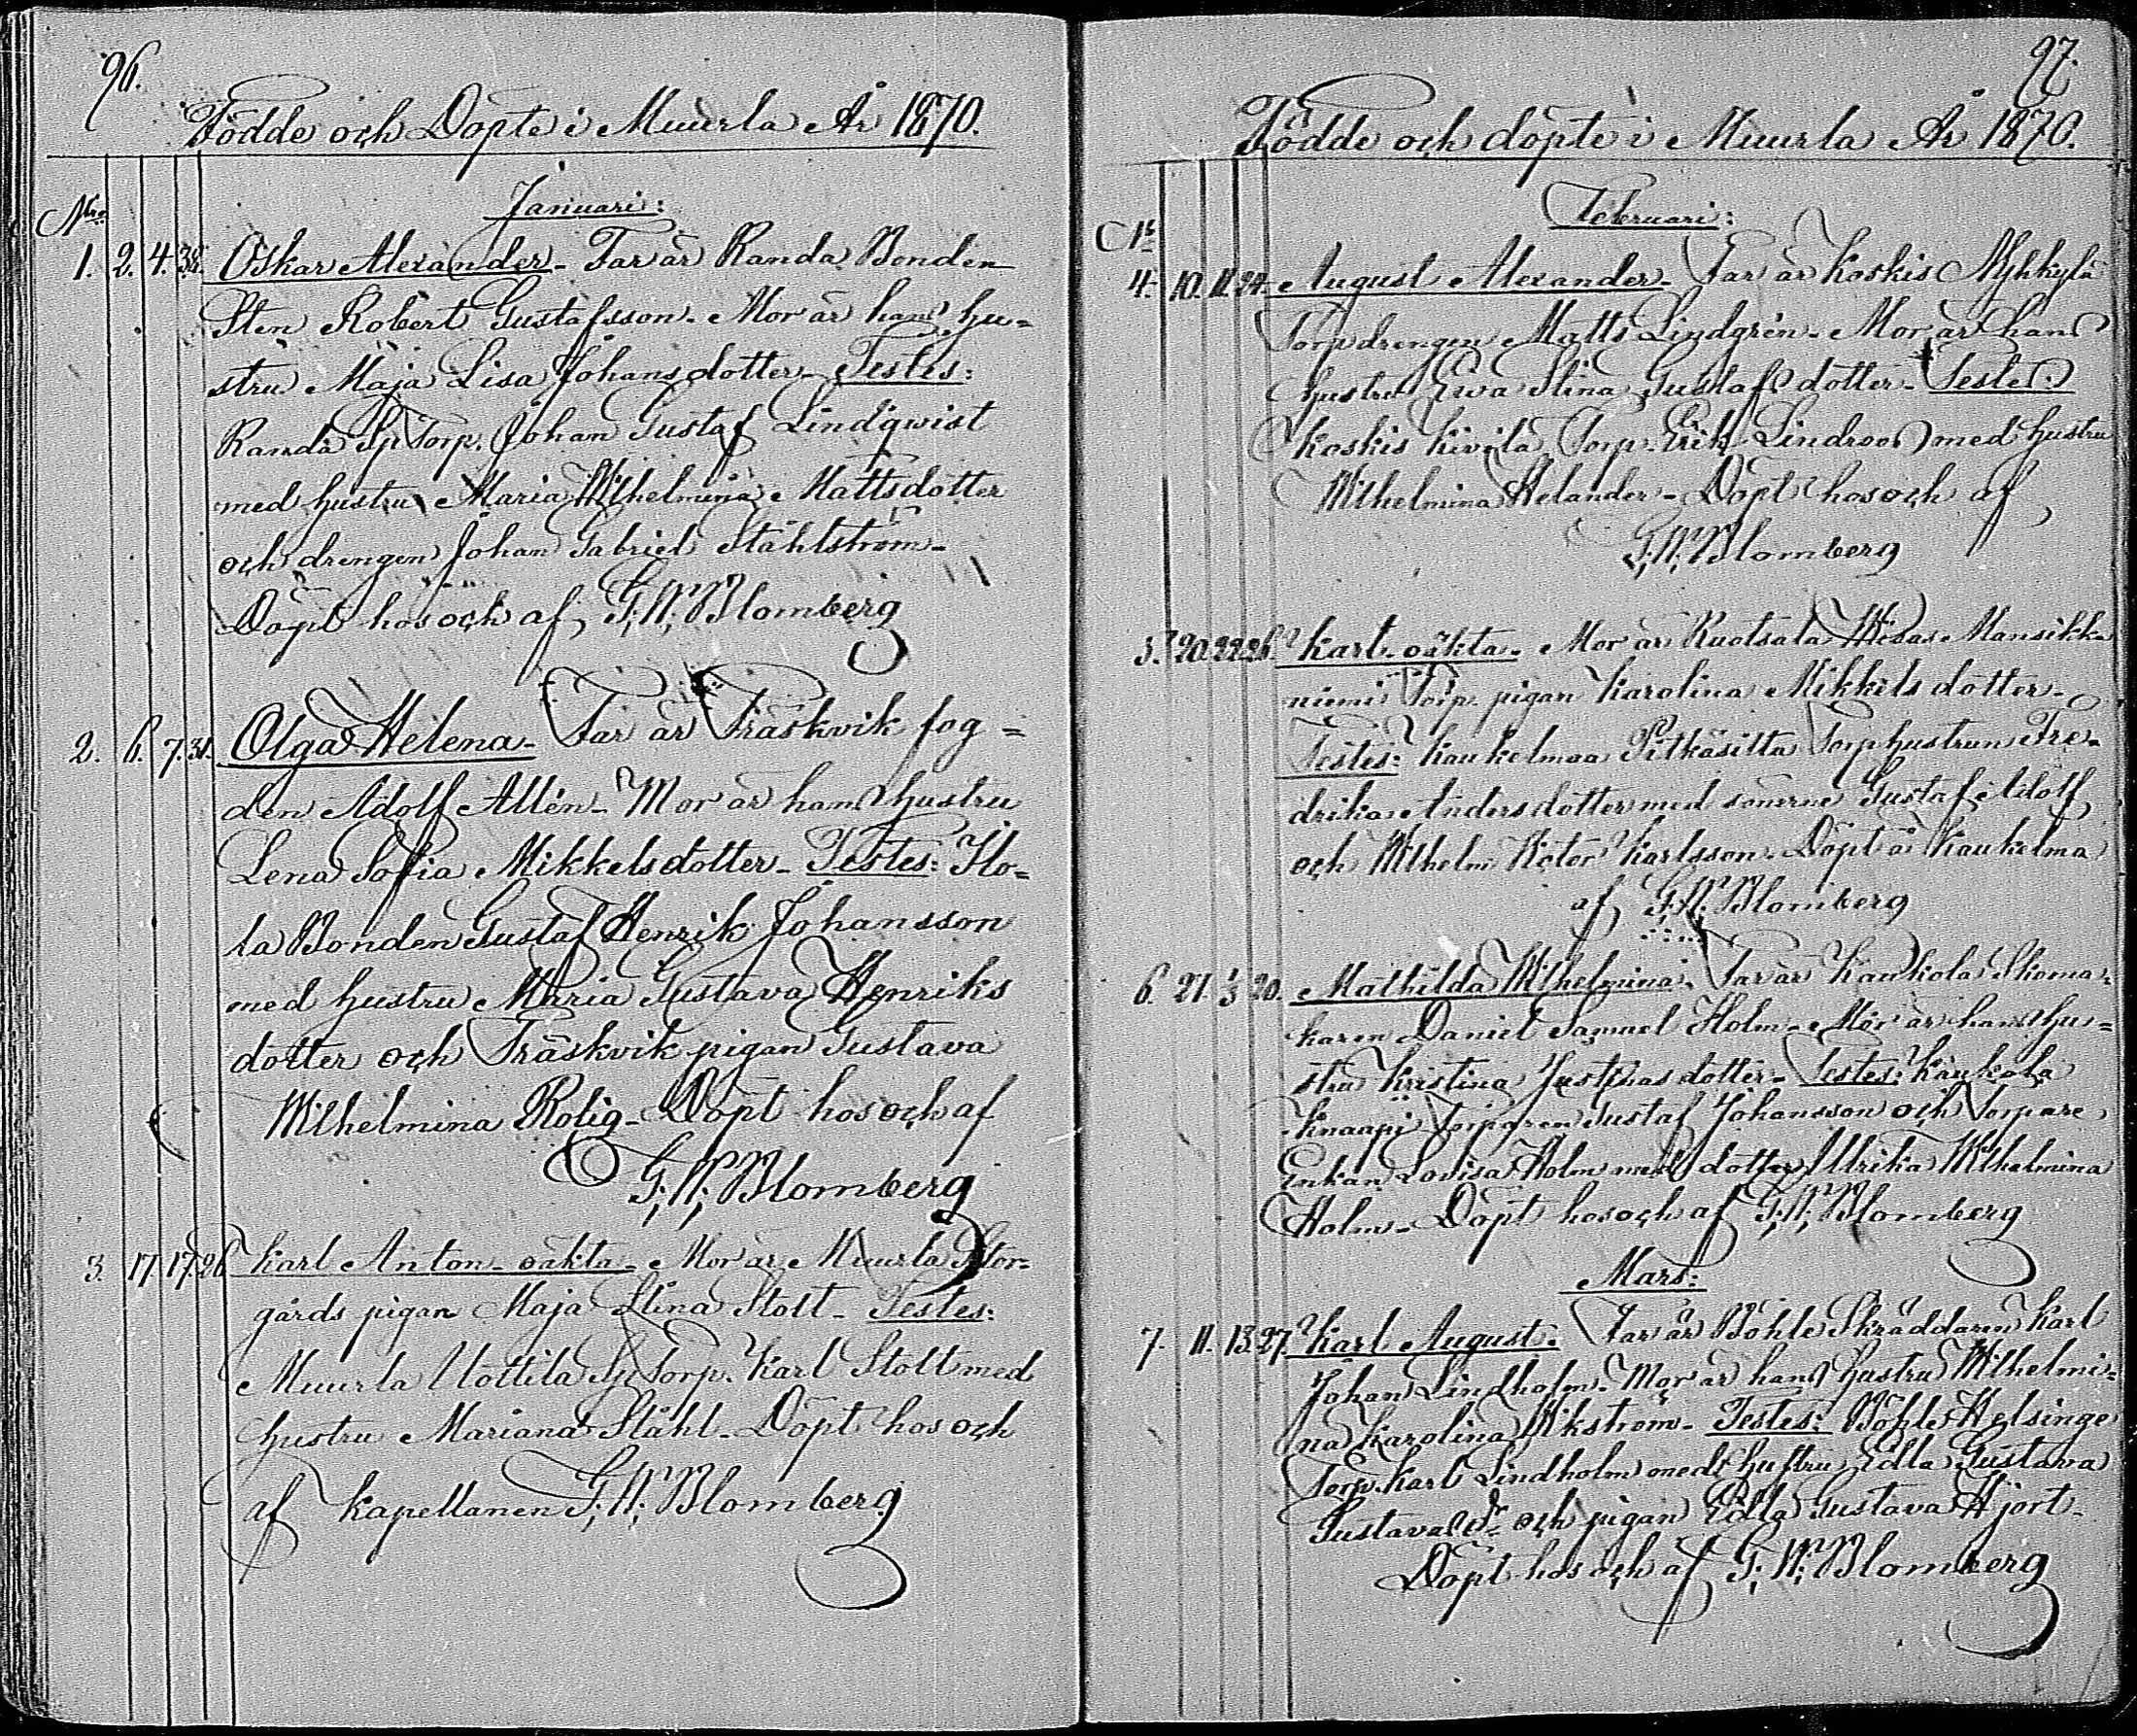 96.
Födde och Döpte i Muurla År 1870.
Januari:
Nro
1. 2. 4. 35. Oskar Alexander - Far är Randa Bonden
Sten Robert Gustafsson - Mor är hans hu=
stru Maja Lisa Johansdotter - Testes:
Randa Sp Torp. Johan Gustaf Lindqwist
med hustru Maria Wilhelmina Mattsdotter
och drengen Johan Gabriel Ståhlström -
Döpt hos och af G; W; Blomberg
2. 6. 7. 31. Olga Helena - Far är Träskvik fog=
den Adolf Allén - Mor är hans hustru
Lena Sofia Mikkelsdotter - Testes: Ilo=
la Bonden Gustaf Henrik Johansson
med hustru Maria Gustava Henriks
dotter och Träskvik pigan Gustava
Wilhelmina Rolig - Döpt hos och af
G; W; Blomberg
3. 17. 17. 26 Karl Anton - oäkta - Mor är Muurla Stor-
gårds pigan Maja Stina Stolt - Testes:
Muurla Uottila Sp Torp. Karl Stolt med
hustru Mariana Ståhl - Döpt hos och
af kapellanen G; W; Blomberg
97.
Födde och döpte i Muurla År 1870.
Februari:
4. 10. 11. 24. August Alexander - Far är Koskis Myhkylä
Torpdrengen Matts Lindgrén - Mor är hans
hustru Ewa Stina Gustafsdotter - Testes:
Koskis Kivilä Torp. Erik Lindroos med hustru
Wilhelmina Helander - Döpt hos och af
G; W; Blomberg
5. 20. 22. 26. Karl - oäkta - Mor är Ruotsala Mansikka
niemi Torp. pigan Karolina Mikkelsdotter -
Testes: Kaukelmaa Pitkäsilta Torphustrun Fre-
drika Andersdotter med sönerne Gustaf Adolf
och Wilhelm Victor Karlsson - Döpt å Kaukelma
af G; W; Blomberg
6. 27. 1/3 20. Mathilda Wilhelmina - Far är Kaukola Skoma-
karen Daniel Samuel Holm - Mor är hans hu=
stru Kristina Justinasdotter - Testes: Kaukola
Knaapi Torparen Gustaf Johansson och Torpare
Enkan Lovisa Holm med dotter Ulrika Wilhelmina
Holm - Döpt hos och af G; W; Blomberg
Mars:
7. 11. 13. 27. Karl August - Far är Böhle Skräddaren Karl
Johan Lindholm - Mor är hans hustru Wilhelmi-
na Karolina Wikström - Testes: Böhle Helsinge
Torp. Karl Lindholm med hustru Edla Gustava
Gustavs dr och pigan Edla Gustava Hjort -
Döpt hos och af G; W; Blomberg